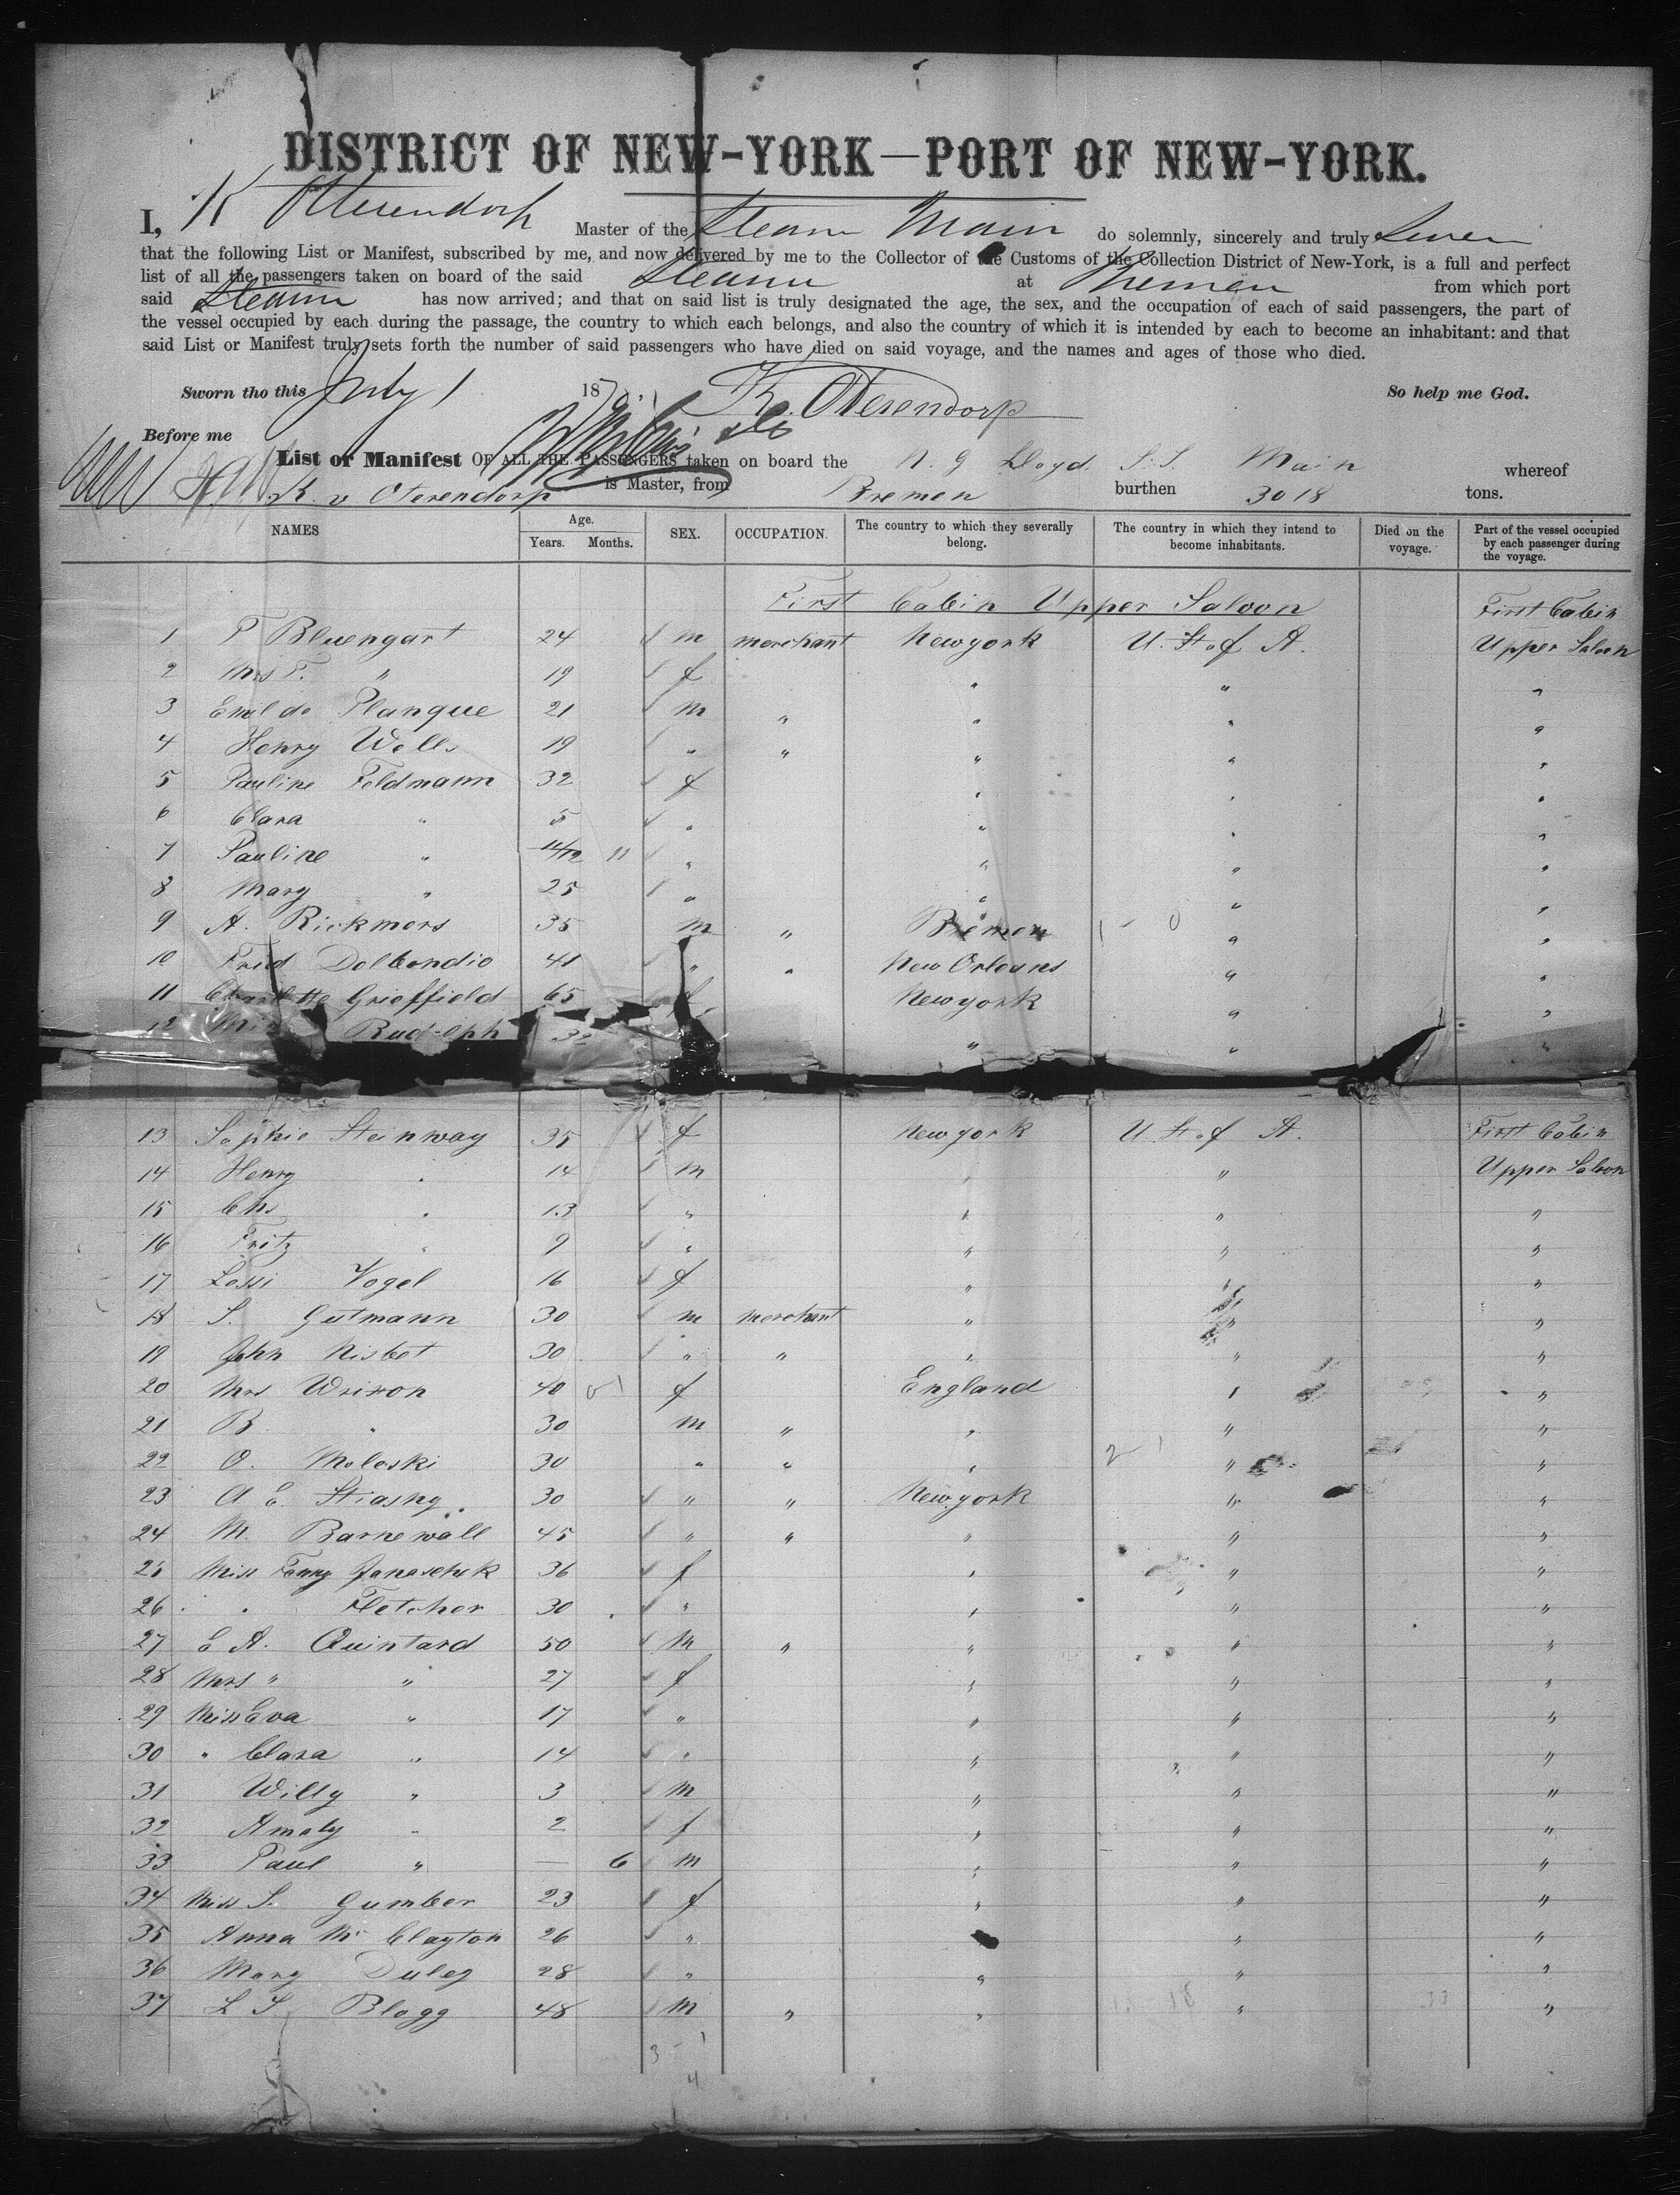 DISTRICT OF NEW-YORK—PORT OF NEW-YORK.
I, K Oterendorp Master of the Steam Main do solemnly, sincerely and truly Swear
that the following List or Manifest, subscribed by me, and now delivered by me to the Collector of the Customs of the Collection District of New-York, is a full and perfect
list of all the passengers taken on board of the said Steam at Bremen from which port
said Steam has now arrived; and that on said list is truly designated the age, the sex, and the occupation of each of said passengers, the part of
the vessel occupied by each during the passage, the country to which each belongs, and also the country of which it is intended by each to become an inhabitant: and that
said List or Manifest truly sets forth the number of said passengers who have died on said voyage, and the names and ages of those who died.
Sworn tho this July 1 187 K. Oterendorp So help me God.
Before me
List or Manifest OF ALL THE PASSENGERS taken on board the N. G Lloyd. S.S. Main whereof
K. v Oterendorp is Master, from Bremen burthen 3018 tons.
NAMES Age. Years. Months. SEX. OCCUPATION. The country to which they severally belong. The country in which they intend to become inhabitants. Died on the voyage. Part of the vessel occupied by each passenger during the voyage.
First Cabin Upper Saloon First Cabin
1 T Bluengart 24 m merchant Newyork U. St. of A. Upper Saloon
2 Mrs T. " 19 f " " "
3 Emil de Planque 21 m " " " "
4 Henry Wells 19 " " " " "
5 Pauline Feldmann 32 f " " "
6 Clara " 5 " " " "
7 Pauline " 11/12 11 " " " "
8 Mary " 25 " " " "
9 A. Rickmers 35 m " Bremen 1 - 0 " "
10 Fried Delbondio 41 " " New Orleans " "
11 Charlotte Grieffield 65 f Newyork " "
12 Rudolph 32 " " "
13 Sophie Steinway 35 f Newyork U St. of A. First Cabin
14 Henry " 14 m " " Upper Saloon
15 Chs " 13 " " " "
16 Fritz " 9 " " " "
17 Lossi Vogel 16 f " " "
18 S. Gutmann 30 m merchant " " "
19 John Nisbet 30 " " " " "
20 Mrs Wrixon 40 f England " "
21 B. " 30 m " " " "
22 O. Moleski 30 " " " 2 - 1 " "
23 A E. Stiasny. 30 " " Newyork " "
24 M. Barnewall 45 " " " " "
25 Miss Fanny Janaschek 36 f " " "
26 " Fletcher 30 " " " "
27 E A. Quintard 50 m " " " "
28 Mrs " " 27 f " " "
29 Miss Eva " 17 " " " "
30 " Clara " 14 " " " "
31 Willy " 3 m " " "
32 Amaly " 2 f " " "
33 Paul " — 6 m " " "
34 Miss S. Gumber 23 f " " "
35 Anna Mc Clayton 26 " " " "
36 Mary Duley 28 " " " "
37 L S. Blagg 48 m " " " 33 "
3 - 1
4